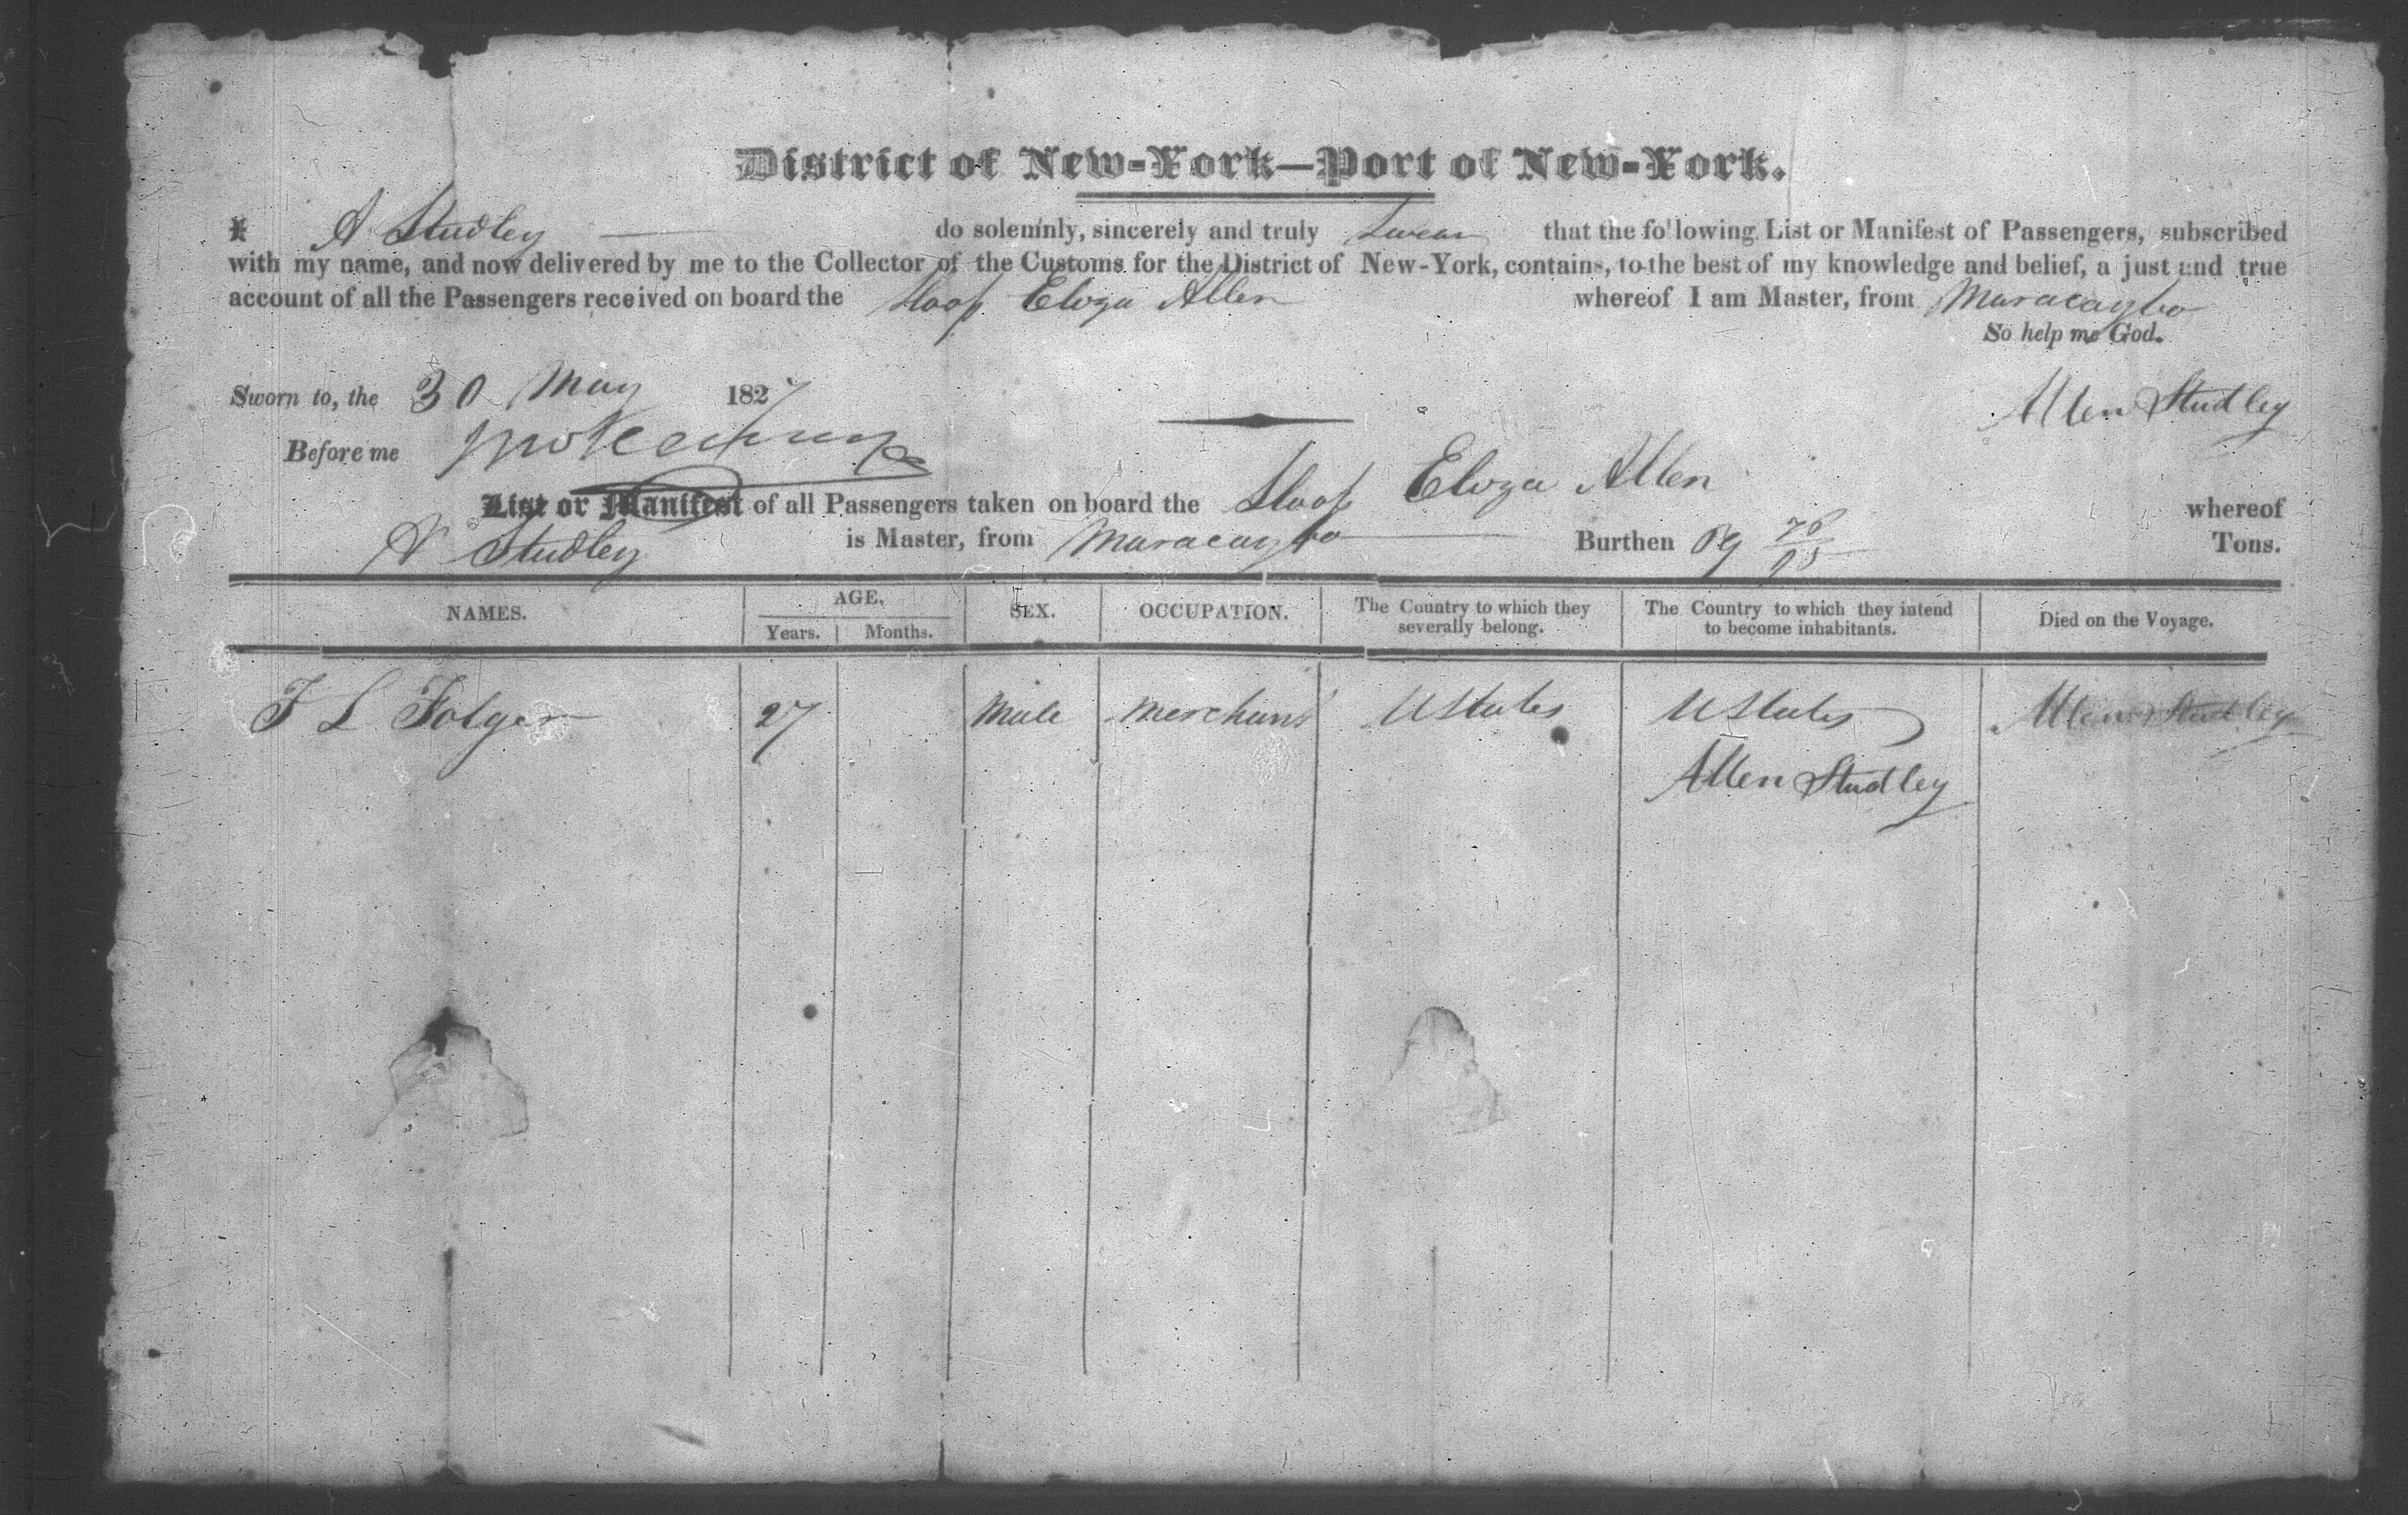 District of New-York—Port of New-York.
I A Studley do solemnly, sincerely and truly Swear that the following List or Manifest of Passengers, subscribed
with my name, and now delivered by me to the Collector of the Customs for the District of New-York, contains, to the best of my knowledge and belief, a just and true
account of all the Passengers received on board the Sloop Eliza Allen whereof I am Master, from Maracaybo
So help me God.
Sworn to, the 30 May 1827
Allen Studley
Before me
List or Manifest of all Passengers taken on board the Sloop Eliza Allen whereof
A Studley is Master, from Maracaybo Burthen 69 76/95 Tons.
NAMES. AGE. Years. Months. SEX. OCCUPATION. The Country to which they severally belong. The Country to which they intend to become inhabitants. Died on the Voyage.
F L Folger 27 Male Merchant U States U States Allen Studley
Allen Studley